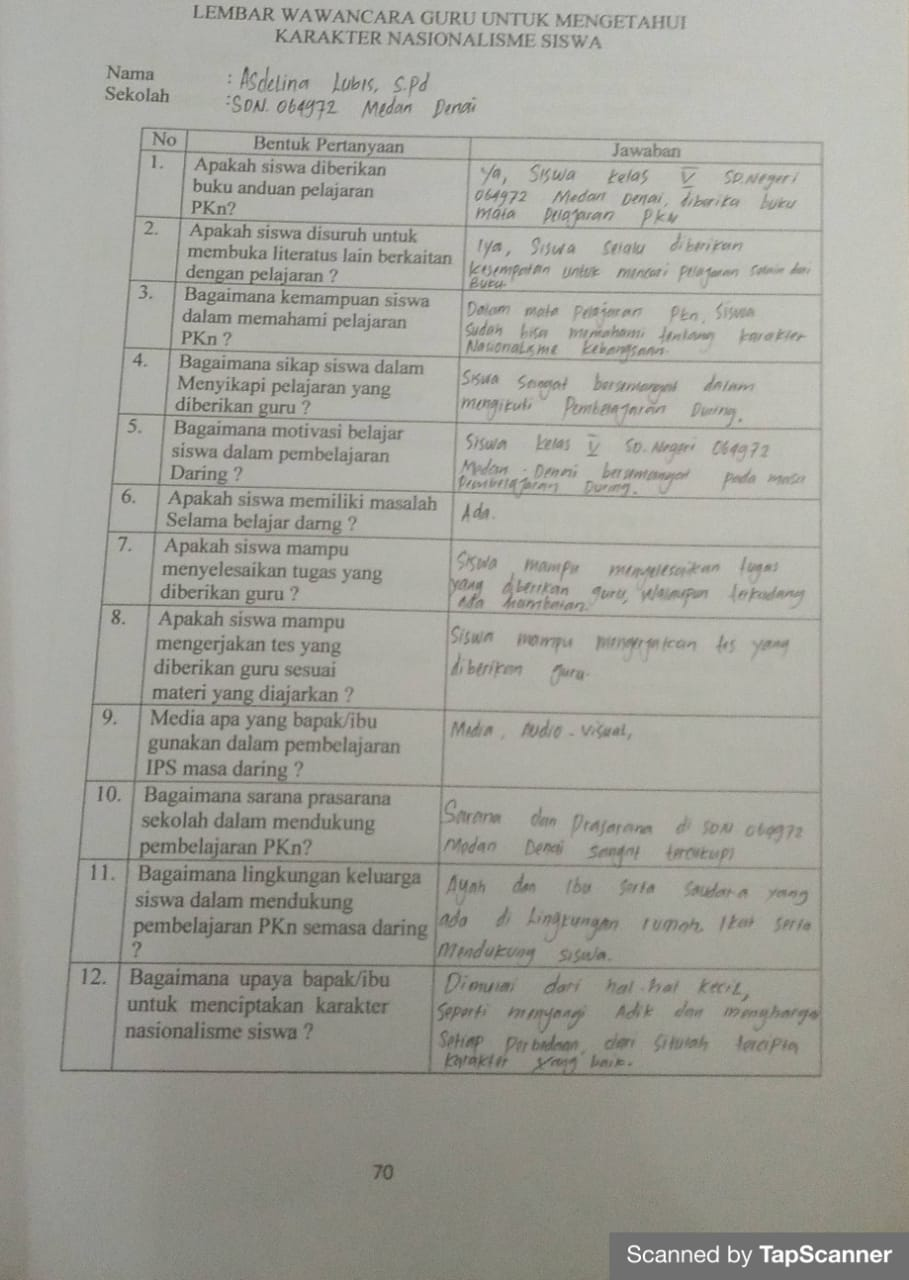 LEMBAR WAWANCARA GURU UNTUK MENGETAHUI
KARAKTER NASIONALISME SISWA
Nama : Asdelina Lubis, S.Pd
Sekolah : SDN. 064972 Medan Denai
No Bentuk Pertanyaan Jawaban
1. Apakah siswa diberikan
buku anduan pelajaran
PKn?
Ya, Siswa kelas V SD.Negeri
064972 Medan Denai, diberika buku
mata pelajaran PKN
2. Apakah siswa disuruh untuk
membuka literatus lain berkaitan
dengan pelajaran ?
Iya, Siswa selalu diberikan
kesempatan untuk mencari pelajaran selain dari
Buku
3. Bagaimana kemampuan siswa
dalam memahami pelajaran
PKn ?
Dalam mata pelajaran Pkn, Siswa
sudah bisa memahami tentang karakter
Nasionalisme kebangsaan.
4. Bagaimana sikap siswa dalam
Menyikapi pelajaran yang
diberikan guru ?
Siswa sangat bersemangat dalam
mengikuti Pembelajaran During.
5. Bagaimana motivasi belajar
siswa dalam pembelajaran
Daring ?
Siswa kelas V SD. Negeri 064972
Medan - Denai bersemangat pada masa
Pembelajaran During.
6. Apakah siswa memiliki masalah
Selama belajar darng ?
Ada.
7. Apakah siswa mampu
menyelesaikan tugas yang
diberikan guru ?
Siswa mampu menyelesaikan tugas
yang diberikan guru, walaupun terkadang
ada hambatan.
8. Apakah siswa mampu
mengerjakan tes yang
diberikan guru sesuai
materi yang diajarkan ?
Siswa mampu mengerjakan tes yang
diberikan guru.
9. Media apa yang bapak/ibu
gunakan dalam pembelajaran
IPS masa daring ?
Media, Audio - visual,
10. Bagaimana sarana prasarana
sekolah dalam mendukung
pembelajaran PKn?
Sarana dan Prasarana di SDN 064972
Medan Denai sangat tercukupi
11. Bagaimana lingkungan keluarga
siswa dalam mendukung
pembelajaran PKn semasa daring
?
Ayah dan Ibu serta saudara yang
ada di Lingkungan rumah, Ikut serta
Mendukung siswa.
12. Bagaimana upaya bapak/ibu
untuk menciptakan karakter
nasionalisme siswa ?
Dimulai dari hal-hal kecil,
Seperti menyangi Adik dan menghargai
Setiap perbedaan, dari situlah tercipta
karakter yang baik.
70
Scanned by TapScanner